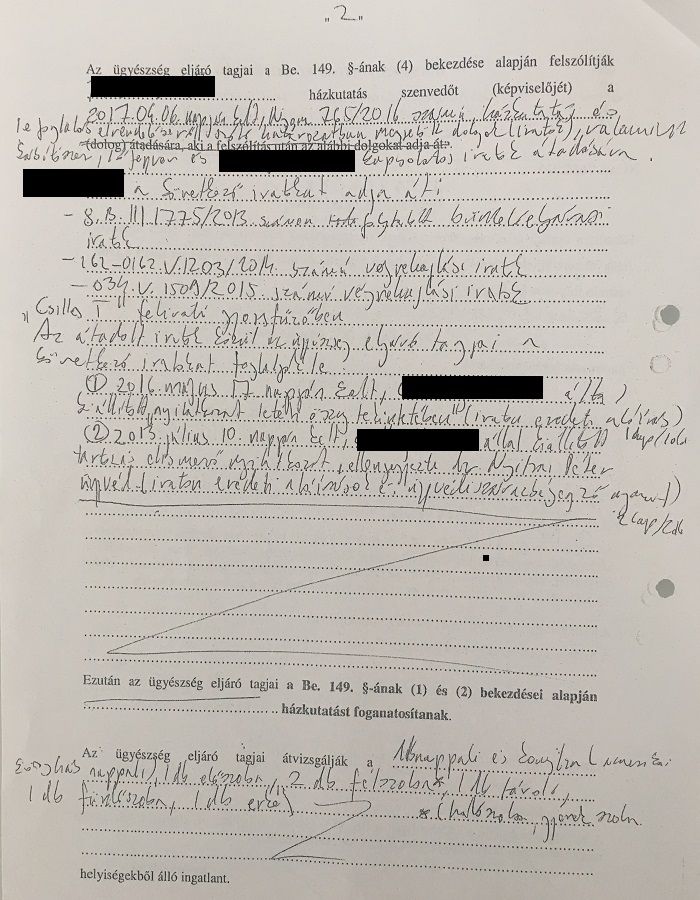 „ 2 „
Az ügyészség eljáró tagjai a Be. 149. §-ának (4) bekezdése alapján felszólítják
házkutatás szenvedőt (képviselőjét) a
2017.04.06. napján kelt, Nyom. 765/2016 számú, házkutatás és
lefoglalás elrendelésről szóló határozatban megjelölt dolgok (iratok), valamint
(dolog) átadására, aki a felszólítás után az alábbi dolgokat adja át:
és kapcsolatos iratok átadására.
a következő iratokat adja át:
- 8.B.III.1775/2013 számon folytatott büntetőeljárási
iratok
- 162-0162.V.1203/2014 számú végrehajtási iratok
- 034.V.1509/2015 számú végrehajtási iratok
„Csillos I" feliratú
Az átadott iratok közül az ügyészség eljáró tagjai a
következő iratokat foglalják le:
① 2016. május 17 napján kelt, által
kiállított „nyilatkozat letéti összeg tekintetében" (iraton eredeti aláírás)
1 lap/1 db
② 2013. július 10. napján kelt, által kiállított
tartozás elismerő nyilatkozat, ellenjegyezte dr. Nyitrai Péter
ügyvéd (iraton eredeti aláírások és ügyvédi szárazbélyegző nyomat)
2 lap/2 db
Ezután az ügyészség eljáró tagjai a Be. 149. §-ának (1) és (2) bekezdései alapján
házkutatást foganatosítanak.
Az ügyészség eljáró tagjai átvizsgálják a nappali és konyha (amerikai
konyhás nappali), 1 db előszoba, 2 db félszoba*, 1 db tároló,
1 db fürdőszoba, 1 db erkély
* (hálószoba, gyerekszoba
helyiségekből álló ingatlant.